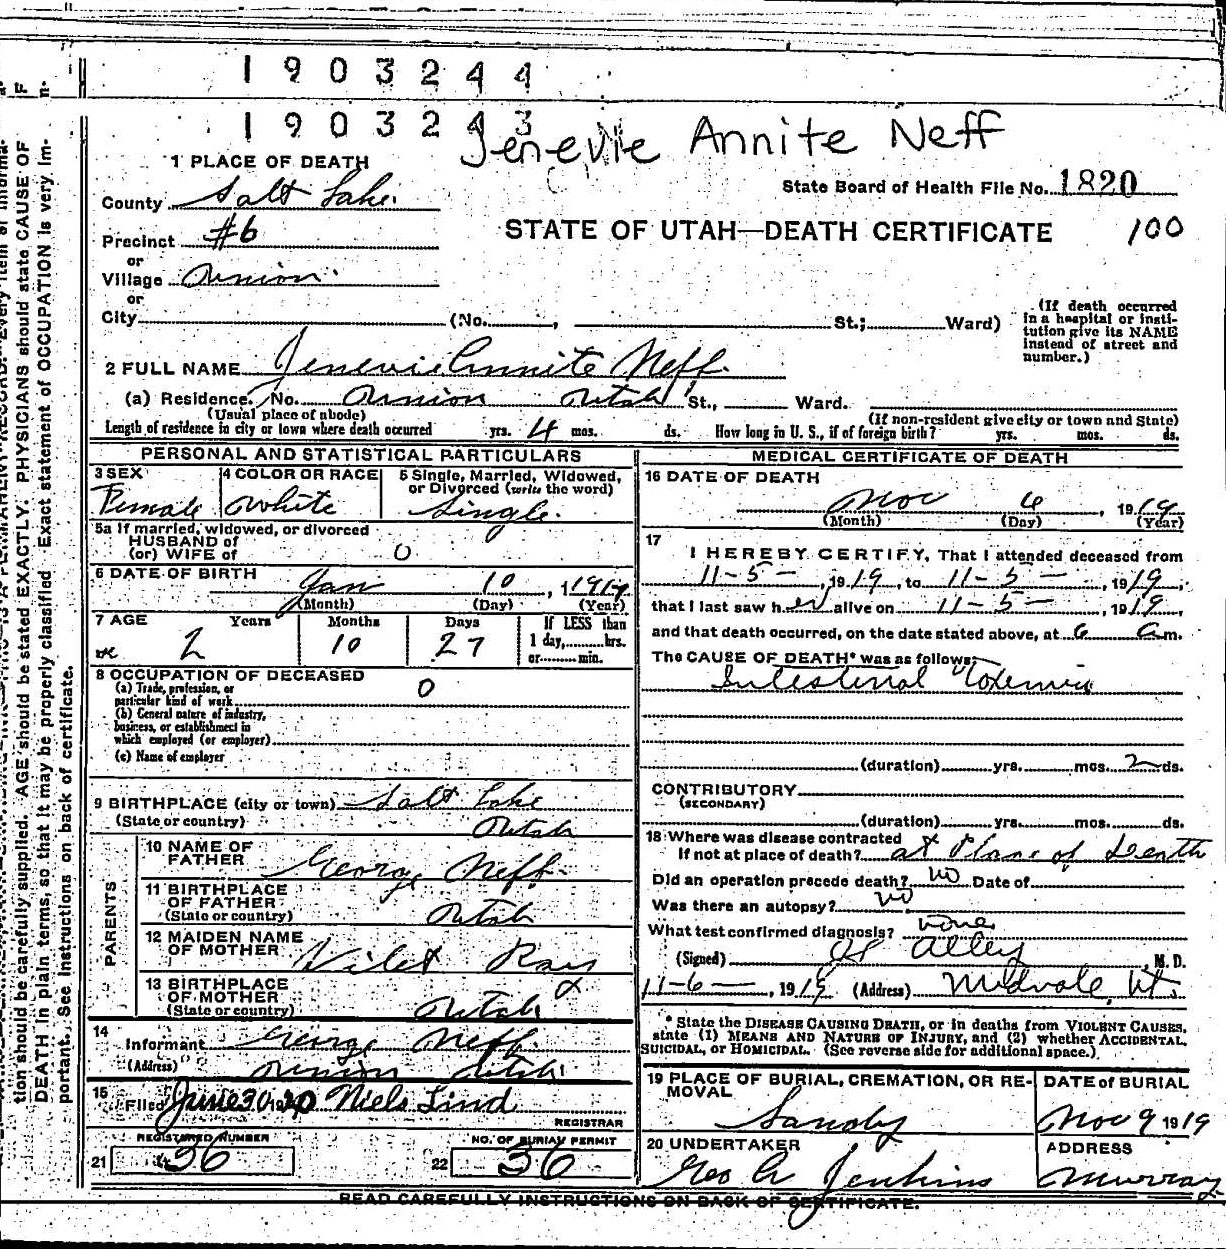 1 9 0 3 2 4 4
1 9 0 3 2 4 3
Jenevie Annite Neff
1 PLACE OF DEATH
State Board of Health File No. 1820
County Salt Lake.
STATE OF UTAH—DEATH CERTIFICATE 100
Precinct #6
or
Village Union.
or
City (No. , St.; Ward)
(If death occurred in a hospital or institution give its NAME instead of street and number.)
2 FULL NAME Jenevie Annite Neff
(a) Residence. No. Union Utah St., Ward.
(Usual place of abode) (If non-resident give city or town and State)
Length of residence in city or town where death occurred yrs. 4 mos. ds. How long in U. S., if of foreign birth? yrs. mos. ds.
PERSONAL AND STATISTICAL PARTICULARS
3 SEX Female
4 COLOR OR RACE White
5 Single, Married, Widowed, or Divorced (write the word) Single.
5a If married, widowed, or divorced
HUSBAND of
(or) WIFE of 0
6 DATE OF BIRTH Jan 10, 1917
(Month) (Day) (Year)
7 AGE Years Months Days If LESS than
2 10 27 1 day, hrs.
or min.
8 OCCUPATION OF DECEASED
(a) Trade, profession, or particular kind of work 0
(b) General nature of industry, business, or establishment in which employed (or employer)
(c) Name of employer
9 BIRTHPLACE (city or town) Salt Lake
(State or country) Utah
PARENTS
10 NAME OF FATHER George Neff
11 BIRTHPLACE OF FATHER
(State or country) Utah
12 MAIDEN NAME OF MOTHER Vilet
13 BIRTHPLACE OF MOTHER
(State or country) Utah
14
Informant George Neff.
(Address) Union Utah.
15 Filed June 30 1920 Niels Lind
REGISTRAR
REGISTERED NUMBER
21 36
NO. OF BURIAL PERMIT
22 36
MEDICAL CERTIFICATE OF DEATH
16 DATE OF DEATH
Nov 6, 1919
(Month) (Day) (Year)
17
I HEREBY CERTIFY, That I attended deceased from
11-5-, 1919, to 11-5-, 1919,
that I last saw her alive on 11-5-, 1919,
and that death occurred, on the date stated above, at 6 a m.
The CAUSE OF DEATH* was as follows:
Intestinal Toxemia
(duration) yrs. mos. 2 ds.
CONTRIBUTORY
(SECONDARY)
(duration) yrs. mos. ds.
18 Where was disease contracted
If not at place of death? at Place of Death
Did an operation precede death? no Date of
Was there an autopsy? no
What test confirmed diagnosis? none
(Signed) Alley, M. D.
11-6-, 1919 (Address) Midvale, Ut.
* State the DISEASE CAUSING DEATH, or in deaths from VIOLENT CAUSES,
state (1) MEANS AND NATURE OF INJURY, and (2) whether ACCIDENTAL,
SUICIDAL, or HOMICIDAL. (See reverse side for additional space.)
19 PLACE OF BURIAL, CREMATION, OR REMOVAL Sandy
DATE of BURIAL Nov 9 1919
20 UNDERTAKER Geo A Jenkins
ADDRESS Murray
READ CAREFULLY INSTRUCTIONS ON BACK OF CERTIFICATE.
tion should be carefully supplied. AGE should be stated EXACTLY. PHYSICIANS should state CAUSE OF
DEATH in plain terms, so that it may be properly classified. Exact statement of OCCUPATION is very im-
portant. See instructions on back of certificate.